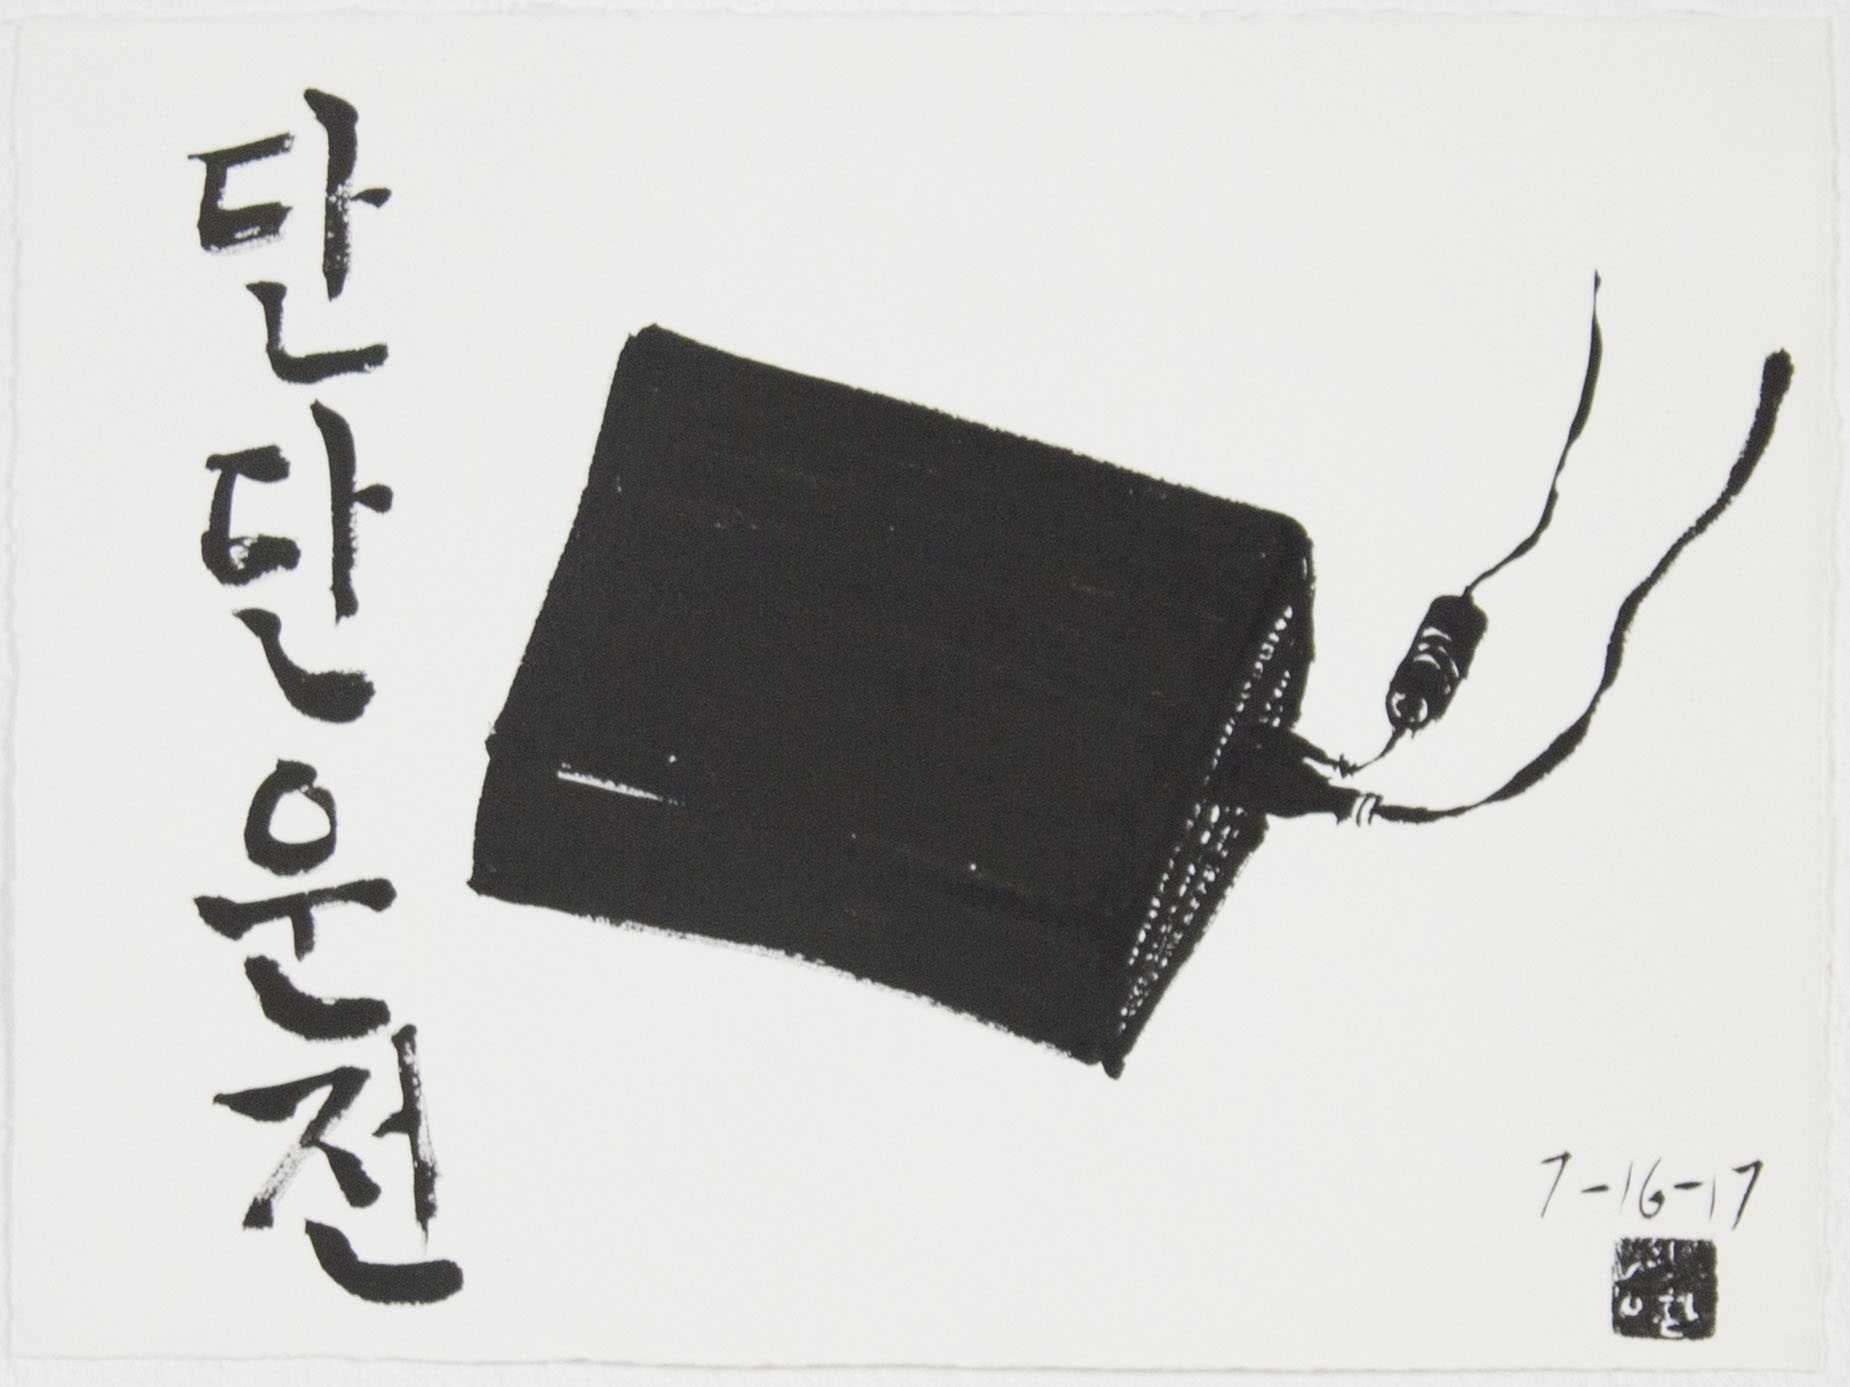 단단운전
7-16-17